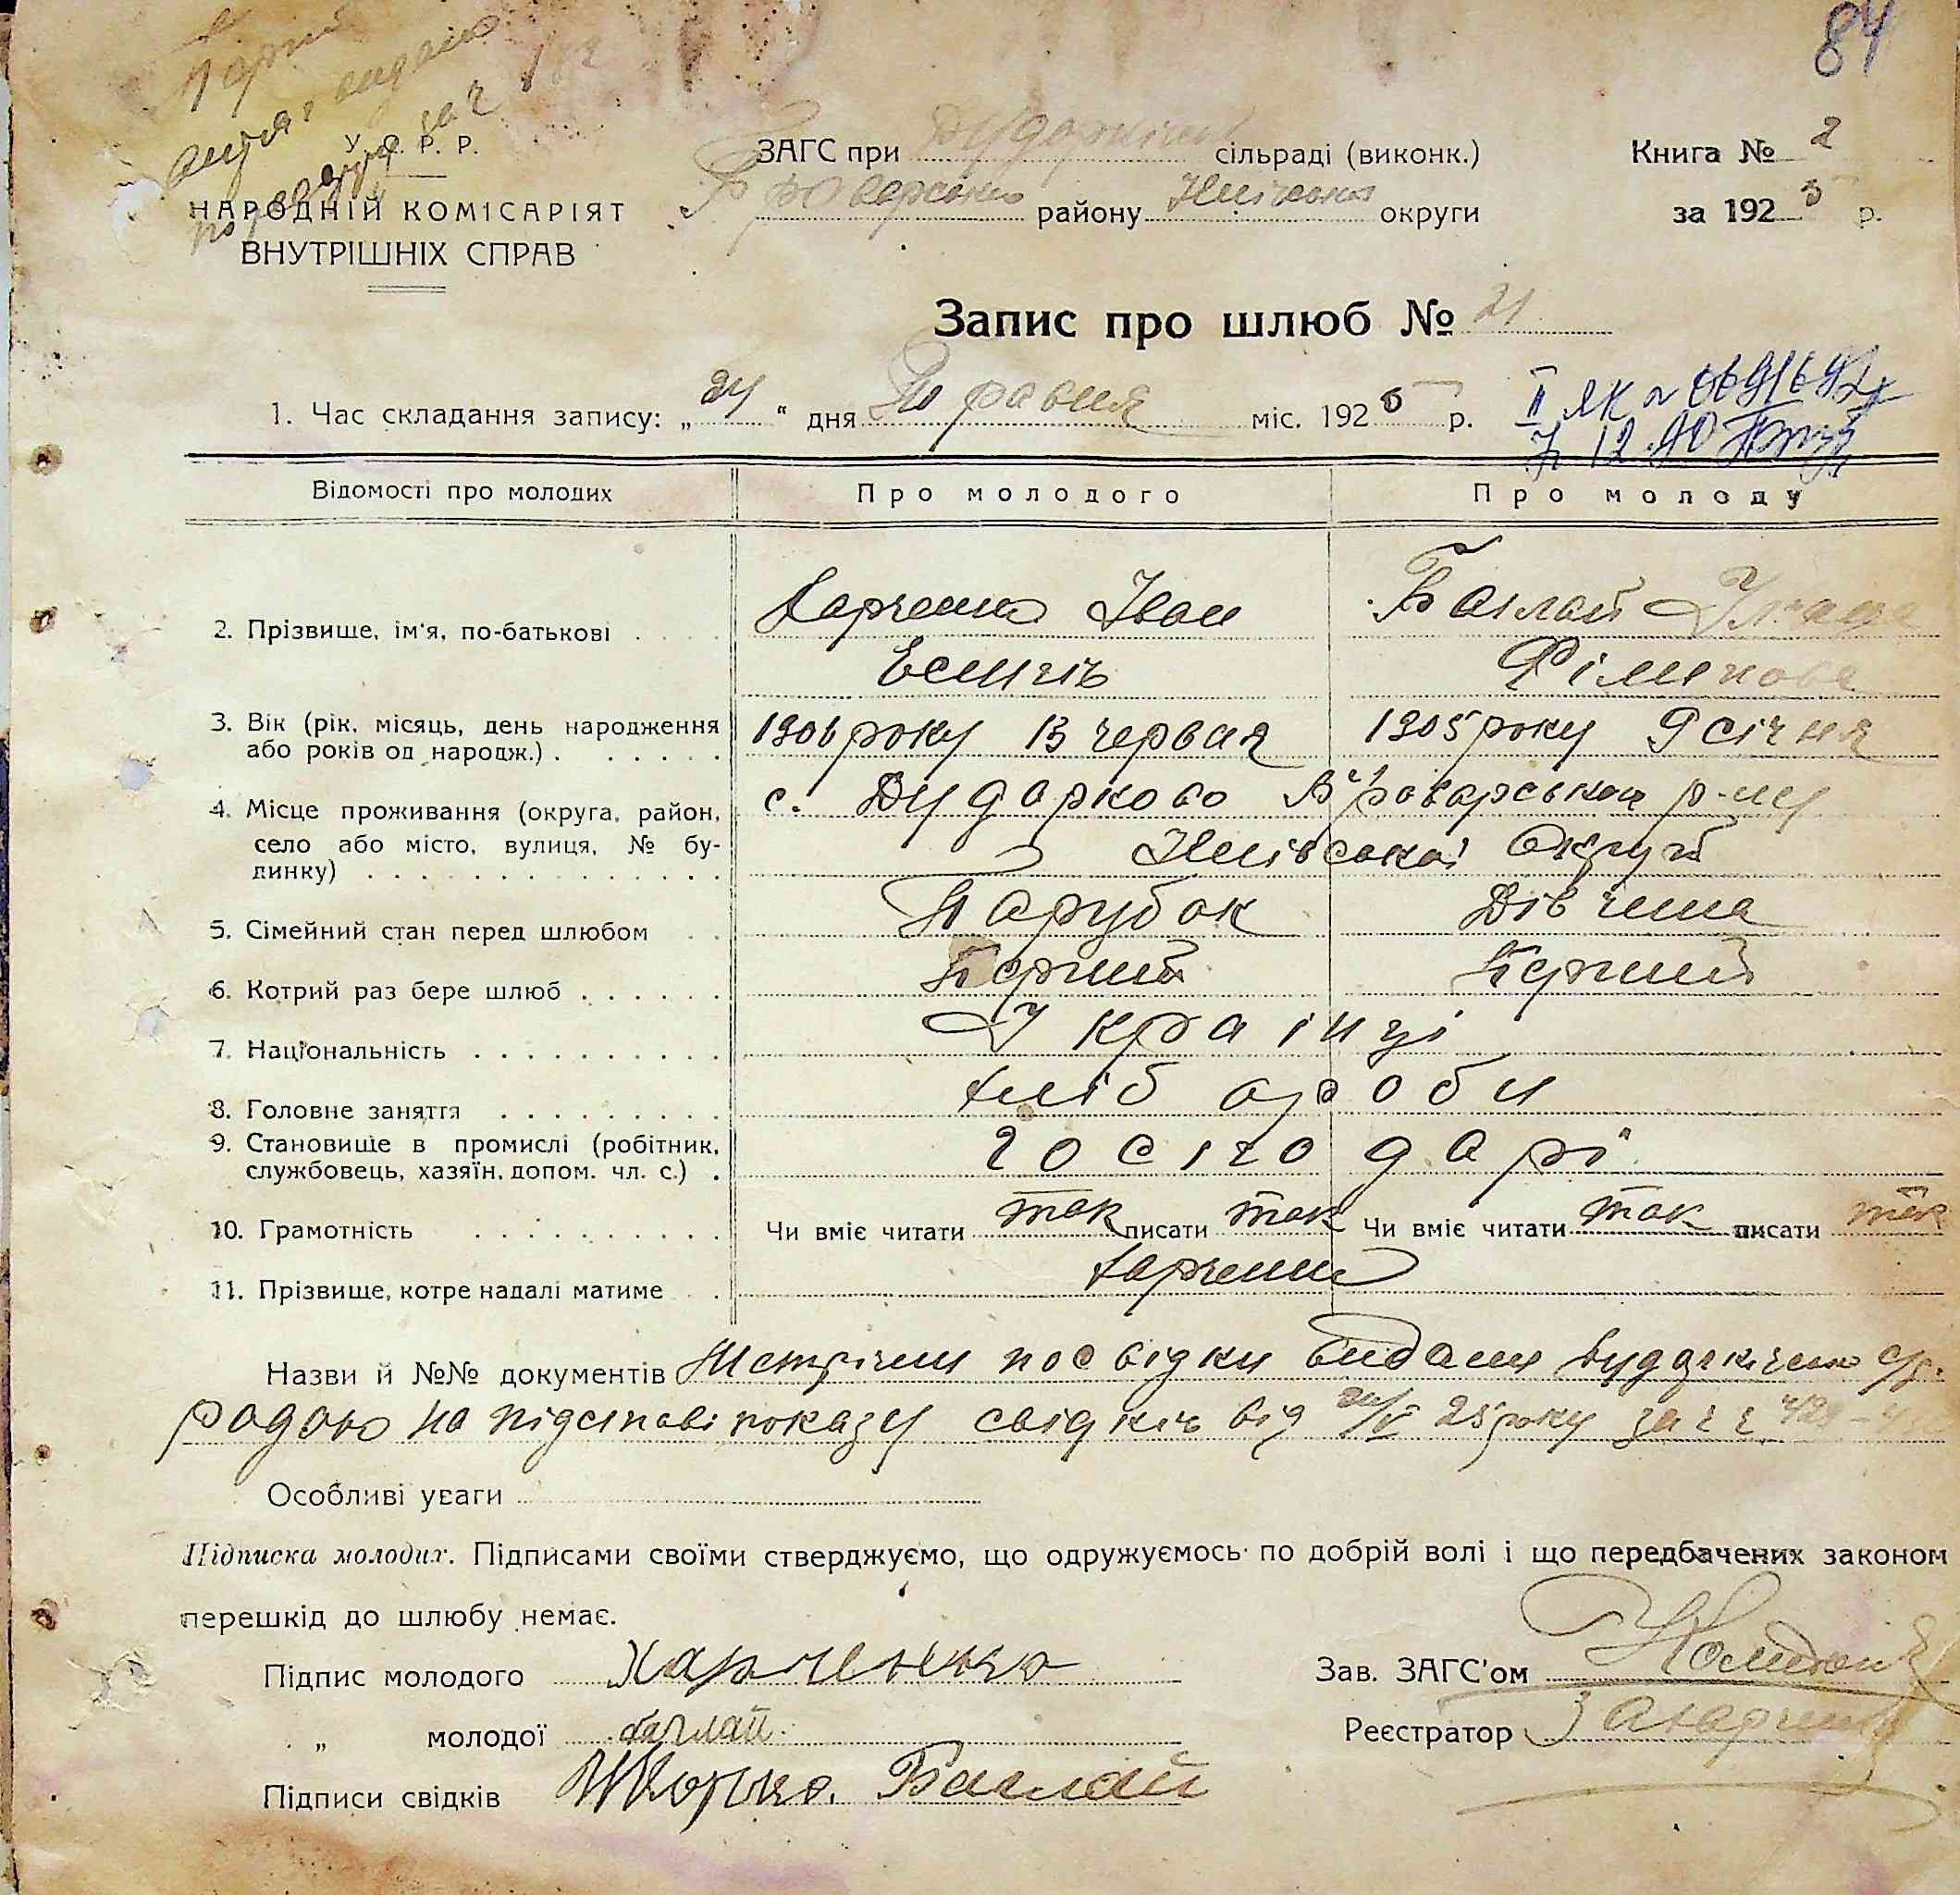 84
У. С. Р. Р.
НАРОДНІЙ КОМІСАРІЯТ
ВНУТРІШНІХ СПРАВ
ЗАГС при сільраді (виконк.)
району округи
Книга № 2
за 1925 р.
Запис про шлюб № 21
1. Час складання запису: „24“ дня Травня міс. 1925 р.
Відомості про молодих
Про молодого
Про молоду
2. Прізвище, ім'я, по-батькові Харченко Іван Баглай
3. Вік (рік, місяць, день народження 1906 року 13 червня 1905 року 9 січня
або років од народж.)
4. Місце проживання (округа, район, с. Дударково Броварського р-ну
село або місто, вулиця, № бу- Київської Округи
динку)
5. Сімейний стан перед шлюбом Парубок Дівчина
6. Котрий раз бере шлюб Перший Перший
7. Національність Українці
8. Головне заняття хлібороби
9. Становище в промислі (робітник, господарі
службовець, хазяїн, допом. чл. с.)
10. Грамотність Чи вміє читати так писати так Чи вміє читати так писати так
11. Прізвище, котре надалі матиме Харченко
Назви й №№ документів посвідки видані
радою на підставі показу свідків від 25 року за
Особливі уваги
Підписка молодих. Підписами своїми стверджуємо, що одружуємось по добрій волі і що передбачених законом
перешкід до шлюбу немає.
Підпис молодого Харченко
Зав. ЗАГС'ом
„ молодої баглай
Реєстратор
Підписи свідків Баглай